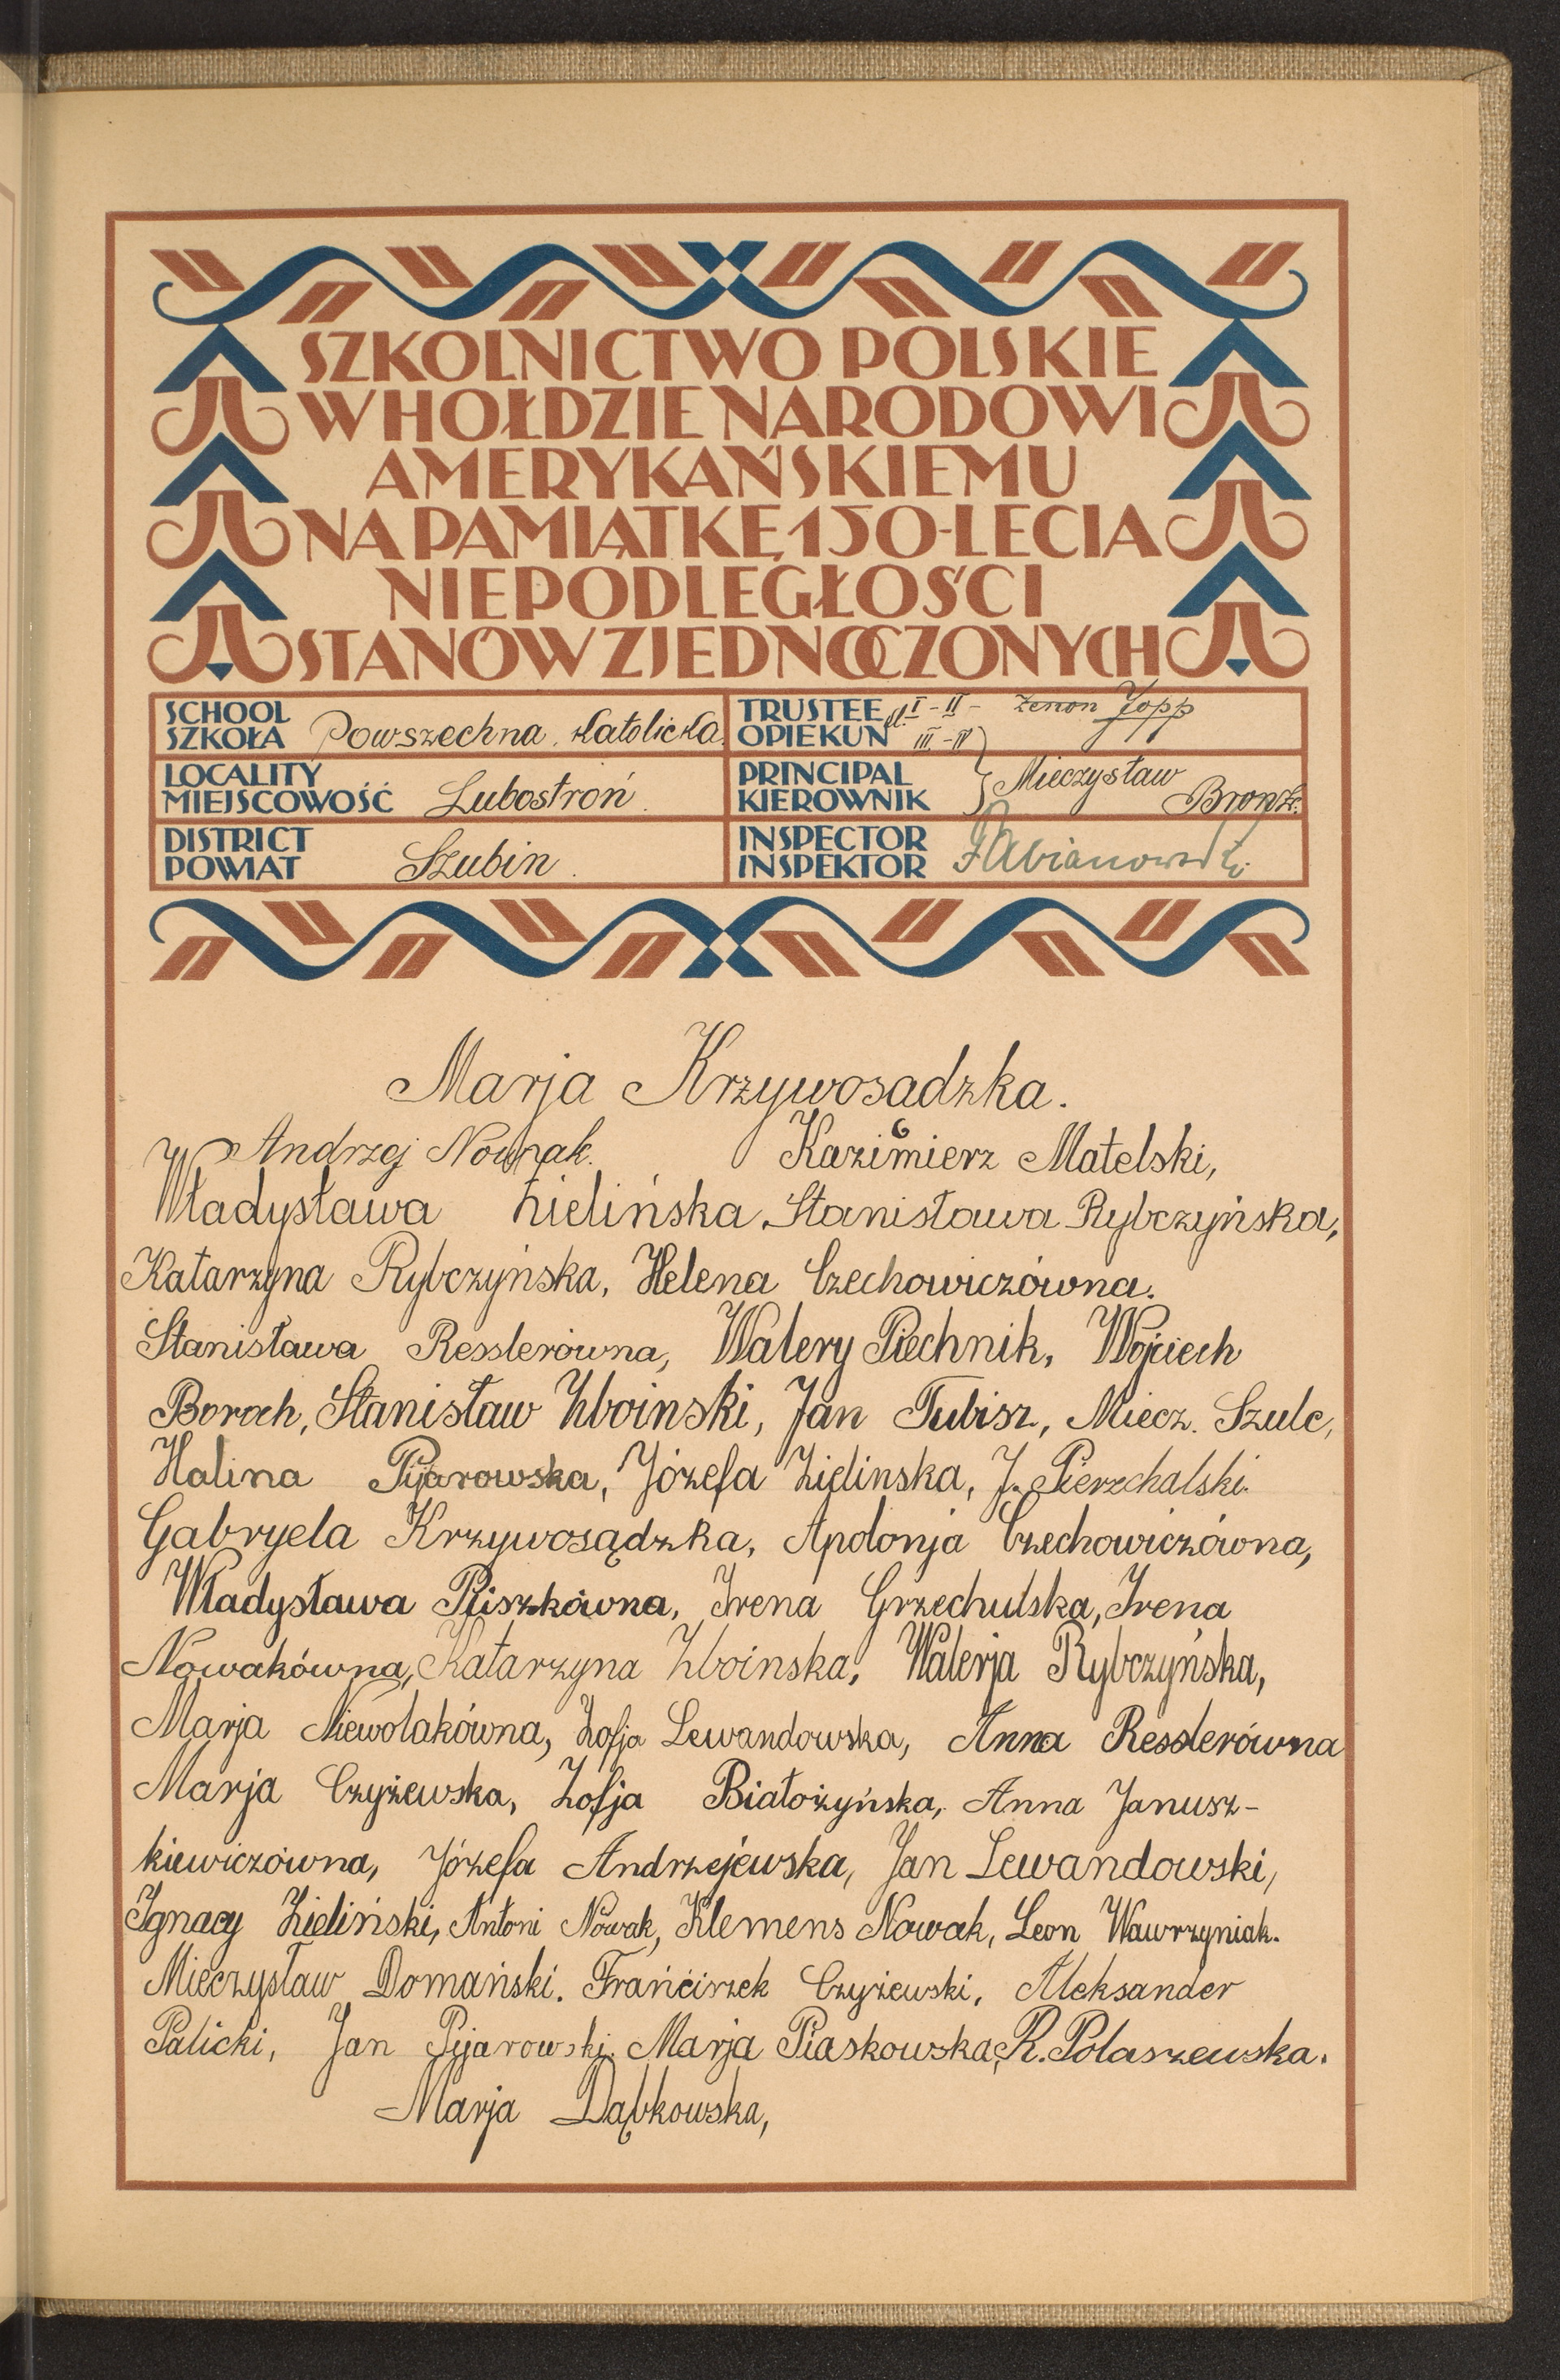 SZKOLNICTWO POLSKIE
W HOŁDZIE NARODOWI
AMERYKAŃSKIEMU
NA PAMIĄTKĘ 150-LECIA
NIEPODLEGŁOŚCI
STANÓW ZJEDNOCZONYCH
SCHOOL
SZKOŁA Powszechna Katolicka
TRUSTEE
OPIEKUN kl. I - II - Zenon Jopp
III - IV
LOCALITY
MIEJSCOWOŚĆ Lubostroń.
PRINCIPAL
KIEROWNIK Mieczysław Bronk.
DISTRICT
POWIAT Szubin.
INSPECTOR
INSPEKTOR Fabianowski
Marja Krzywosadzka.
Andrzej Nowak. Kazimierz Matelski,
Władysława Zielińska, Stanisława Rybczyńska,
Katarzyna Rybczyńska, Helena Czechowiczówna.
Stanisława Resslerówna, Walery Piechnik, Wojciech
Boroch, Stanisław Zboinski, Jan Tubisz, Miecz. Szulc,
Halina Pijarowska, Józefa Zielinska, J. Pierzchalski.
Gabryela Krzywosądzka, Apolonja Czechowiczówna,
Władysława Pliszkówna, Irena Grzechulska, Irena
Nowakówna, Katarzyna Zboinska, Walerja Rybczyńska,
Marja Niewolakówna, Zofja Lewandowska, Anna Resslerówna
Marja Czyżewska, Zofja Białożyńska, Anna Janusz-
kiewiczówna, Józefa Andrzejewska, Jan Lewandowski,
Ignacy Zieliński, Antoni Nowak, Klemens Nowak, Leon Wawrzyniak.
Mieczysław Domański. Frańciszek Czyżewski, Aleksander
Palicki, Jan Pijarowski. Marja Piaskowska, R. Polaszewska.
Marja Dąbkowska,